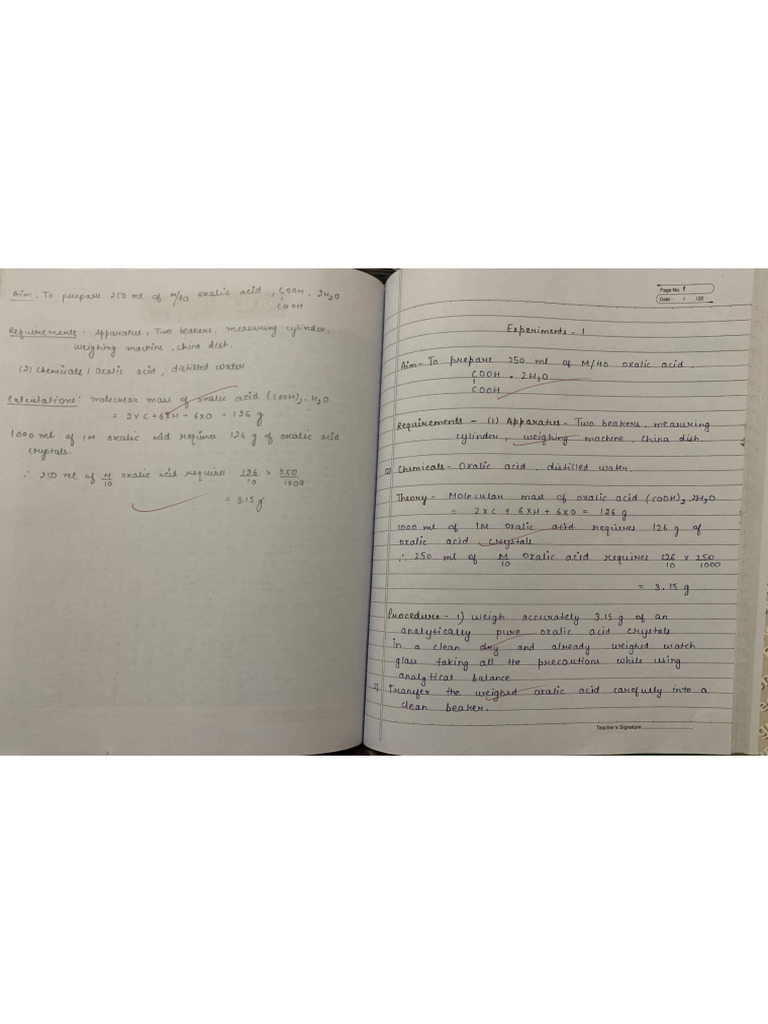 Aim: To prepare 250 ml of M/40 oxalic acid, COOH . 2H2O
COOH
Requirements - Apparatus, Two beakers, measuring cylinder,
weighing machine, china dish.
(2) Chemicals / Oxalic acid, distilled water
Calculations: molecular mass of oxalic acid (COOH)2 . H2O
= 2×C + 6×H + 6×O = 126 g
1000 ml of 1M oxalic acid requires 126 g of oxalic acid
crystals.
∴ 250 ml of M/10 oxalic acid require 126/10 × 250/1000
= 3.15 g
Page No. 1
Date: / /20
Experiments - 1
Aim- To prepare 250 ml of M/40 oxalic acid.
COOH . 2H2O
COOH
Requirements - (1) Apparatus- Two beakers, measuring
cylinder, weighing machine, china dish.
(2) Chemicals- Oxalic acid, distilled water.
Theory - Molecular mass of oxalic acid (COOH)2 2H2O
= 2×C + 6×H + 6×O = 126 g
1000 ml of 1M Oxalic acid requires 126 g of
oxalic acid crystals
∴ 250 ml of M/10 Oxalic acid requires 126/10 × 250/1000
= 3.15 g
Procedure- 1) Weigh accurately 3.15 g of an
analytically pure oxalic acid crystals
in a clean dry and already weighed watch
glass taking all the precautions while using
analytical balance
2) Transfer the weighed oxalic acid carefully into a
clean beaker.
Teacher's Signature